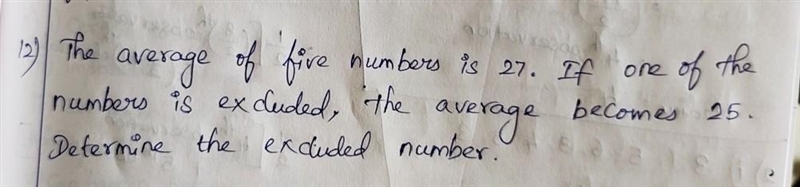 12) The average of five numbers is 27. If one of the
numbers is excluded, the average becomes 25.
Determine the excluded number.